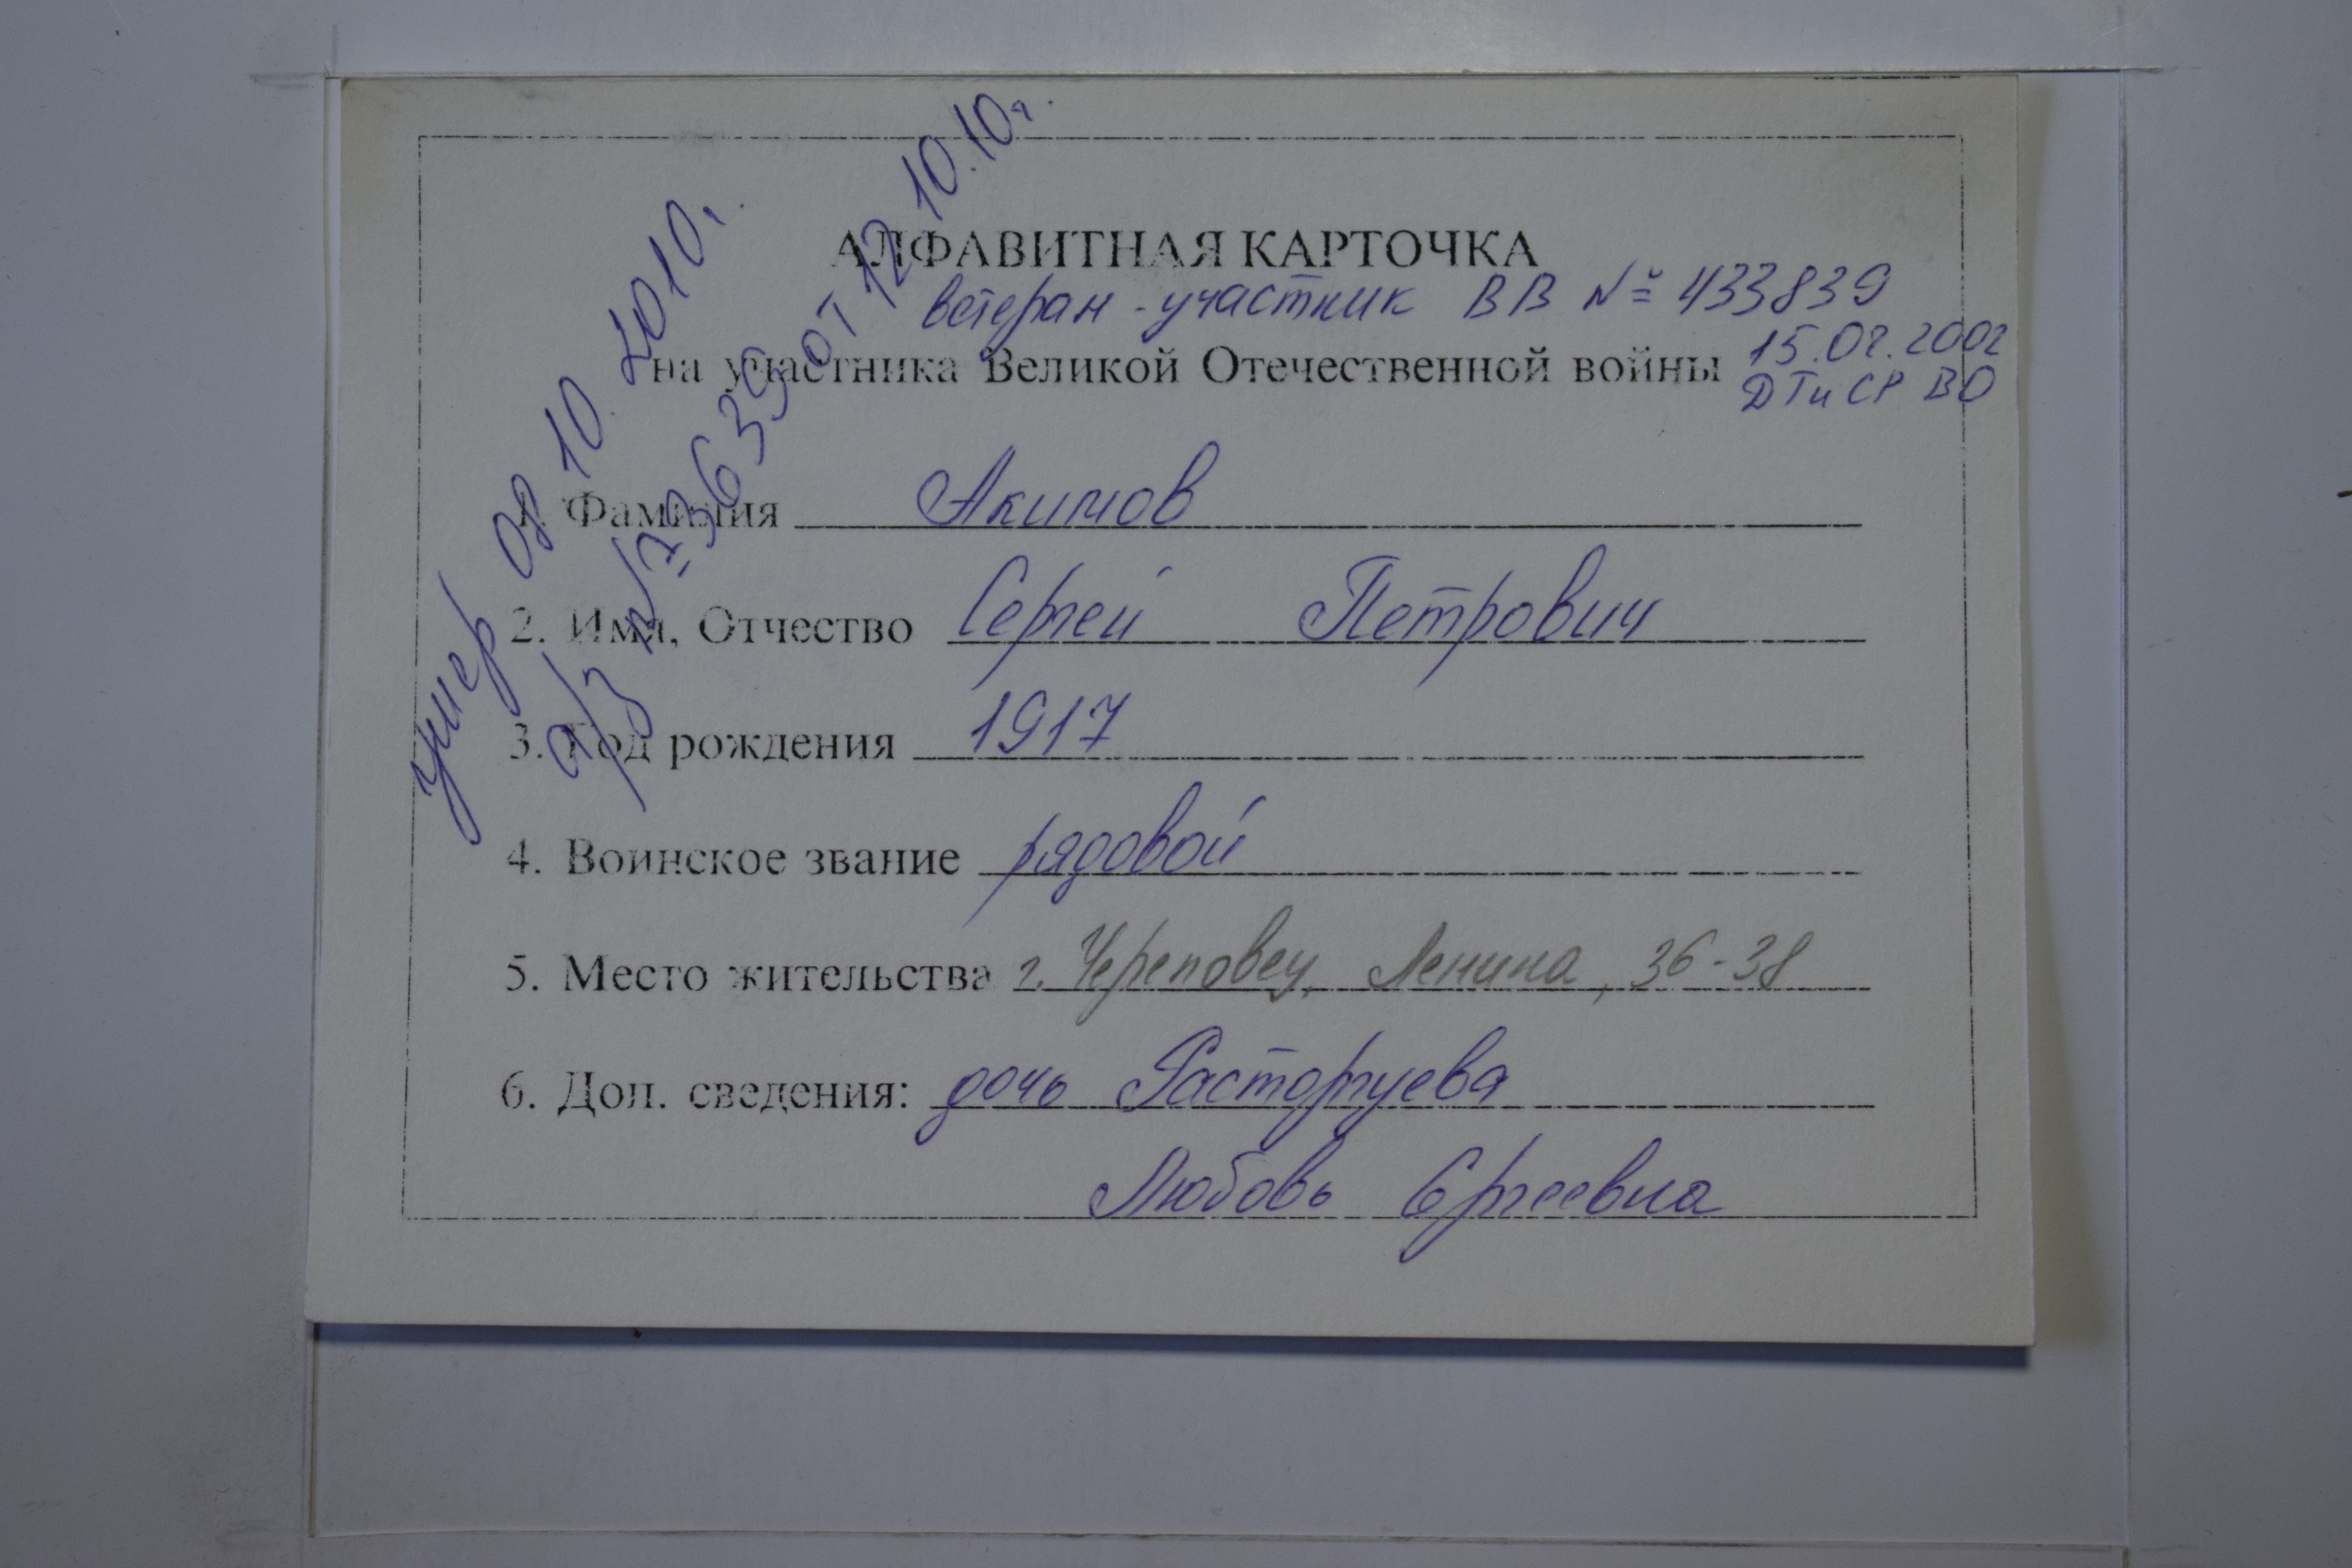 АЛФАВИТНАЯ КАРТОЧКА
ветеран - участник ВВ № 433839
на участника Великой Отечественной войны
15.02.2002
ДТиСР ВО
умер 08.10.2010г.
а/з №3639 от 12.10.10г.
1. Фамилия Акимов
2. Имя, Отчество Сергей Петрович
3. Год рождения 1917
4. Воинское звание рядовой
5. Место жительства г. Череповец, Ленина, 36-38
6. Доп. сведения: дочь Расторгуева
Любовь Сергеевна